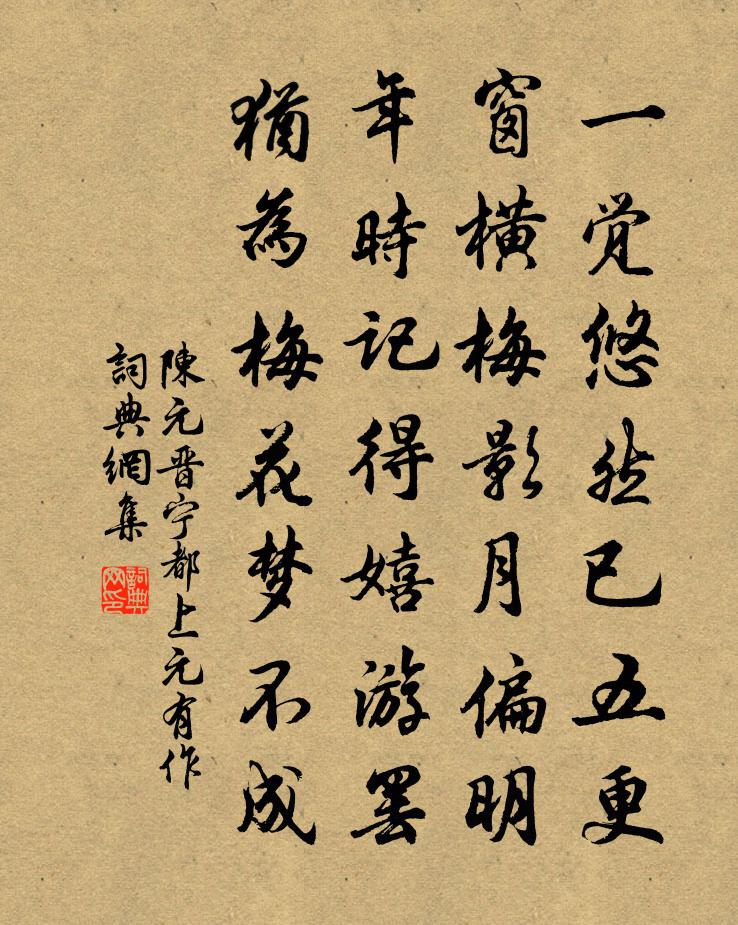 一觉悠然已五更
窗横梅影月偏明
年時记得嬉游罢
猶為梅花梦不成
陳元晋宁都上元有作
詞典網集
詞典网印